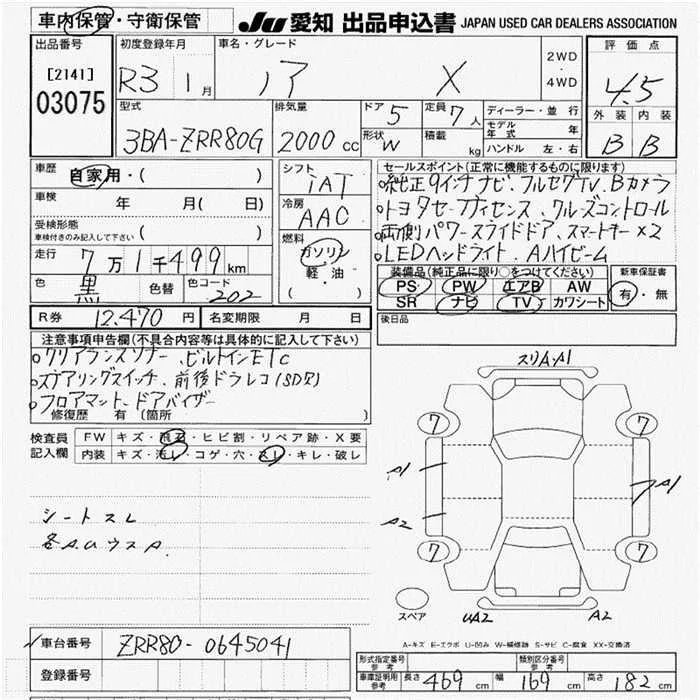 車内保管・守衛保管
JU 愛知 出品申込書 JAPAN USED CAR DEALERS ASSOCIATION
出品番号 初度登録年月 車名・グレード 2WD・4WD 評価点
[2141] 03075 R3 1月 ノア X 4.5
型式 排気量 ドア 5 定員 7人 ディーラー・並行 外装 内装
3BA-ZRR80G 2000cc 形状 W 積載 kg モデル年式 年 B B
ハンドル 左・右
車歴 自家用・( ) シフト iAT セールスポイント(正常に機能するものに限ります)
車検 年 月( 日) 冷房 AAC
受検形態 車検付きのみ記入して下さい ( )
燃料 ガソリン 軽・油 ( )
純正9インチナビ、フルセグTV、Bカメラ
トヨタセーフティセンス、クルーズコントロール
両側パワースライドドア、スマートキー×2
LEDヘッドライト、Aハイビーム
走行 7万1千499km
色 黒 色替 色コード 202
装備品(純正品に限り○をつけてください) 新車保証書
PS PW エアB AW 有・無
SR ナビ TV カワシート
R券 12,470円 名変期限 月 日 後日品
注意事項申告欄(不具合内容等は具体的に記入して下さい)
クリアランスソナー、ビルトインETC
ステアリングスイッチ、前後ドラレコ(SD欠)
フロアマット、ドアバイザー
修復歴 有 〔箇所 〕
検査員記入欄 FW キズ・飛石・ヒビ割・リペア跡・X要
内装 キズ・汚レ・コゲ・穴・スレ・キレ・破レ
シートスレ
各A.UウスA.
スリA・A1
7 7
A1 A1
A2
7 7
スペア UA2 A2
A-キズ E-エクボ U-凹み W-補修跡 S-サビ C-腐食 XX-交換済
車台番号 ZRR80-0645041
登録番号
形式指定番号 参考 類別区分番号 参考
車庫証明用 参考 長さ 469cm 幅 169cm 高さ 182cm